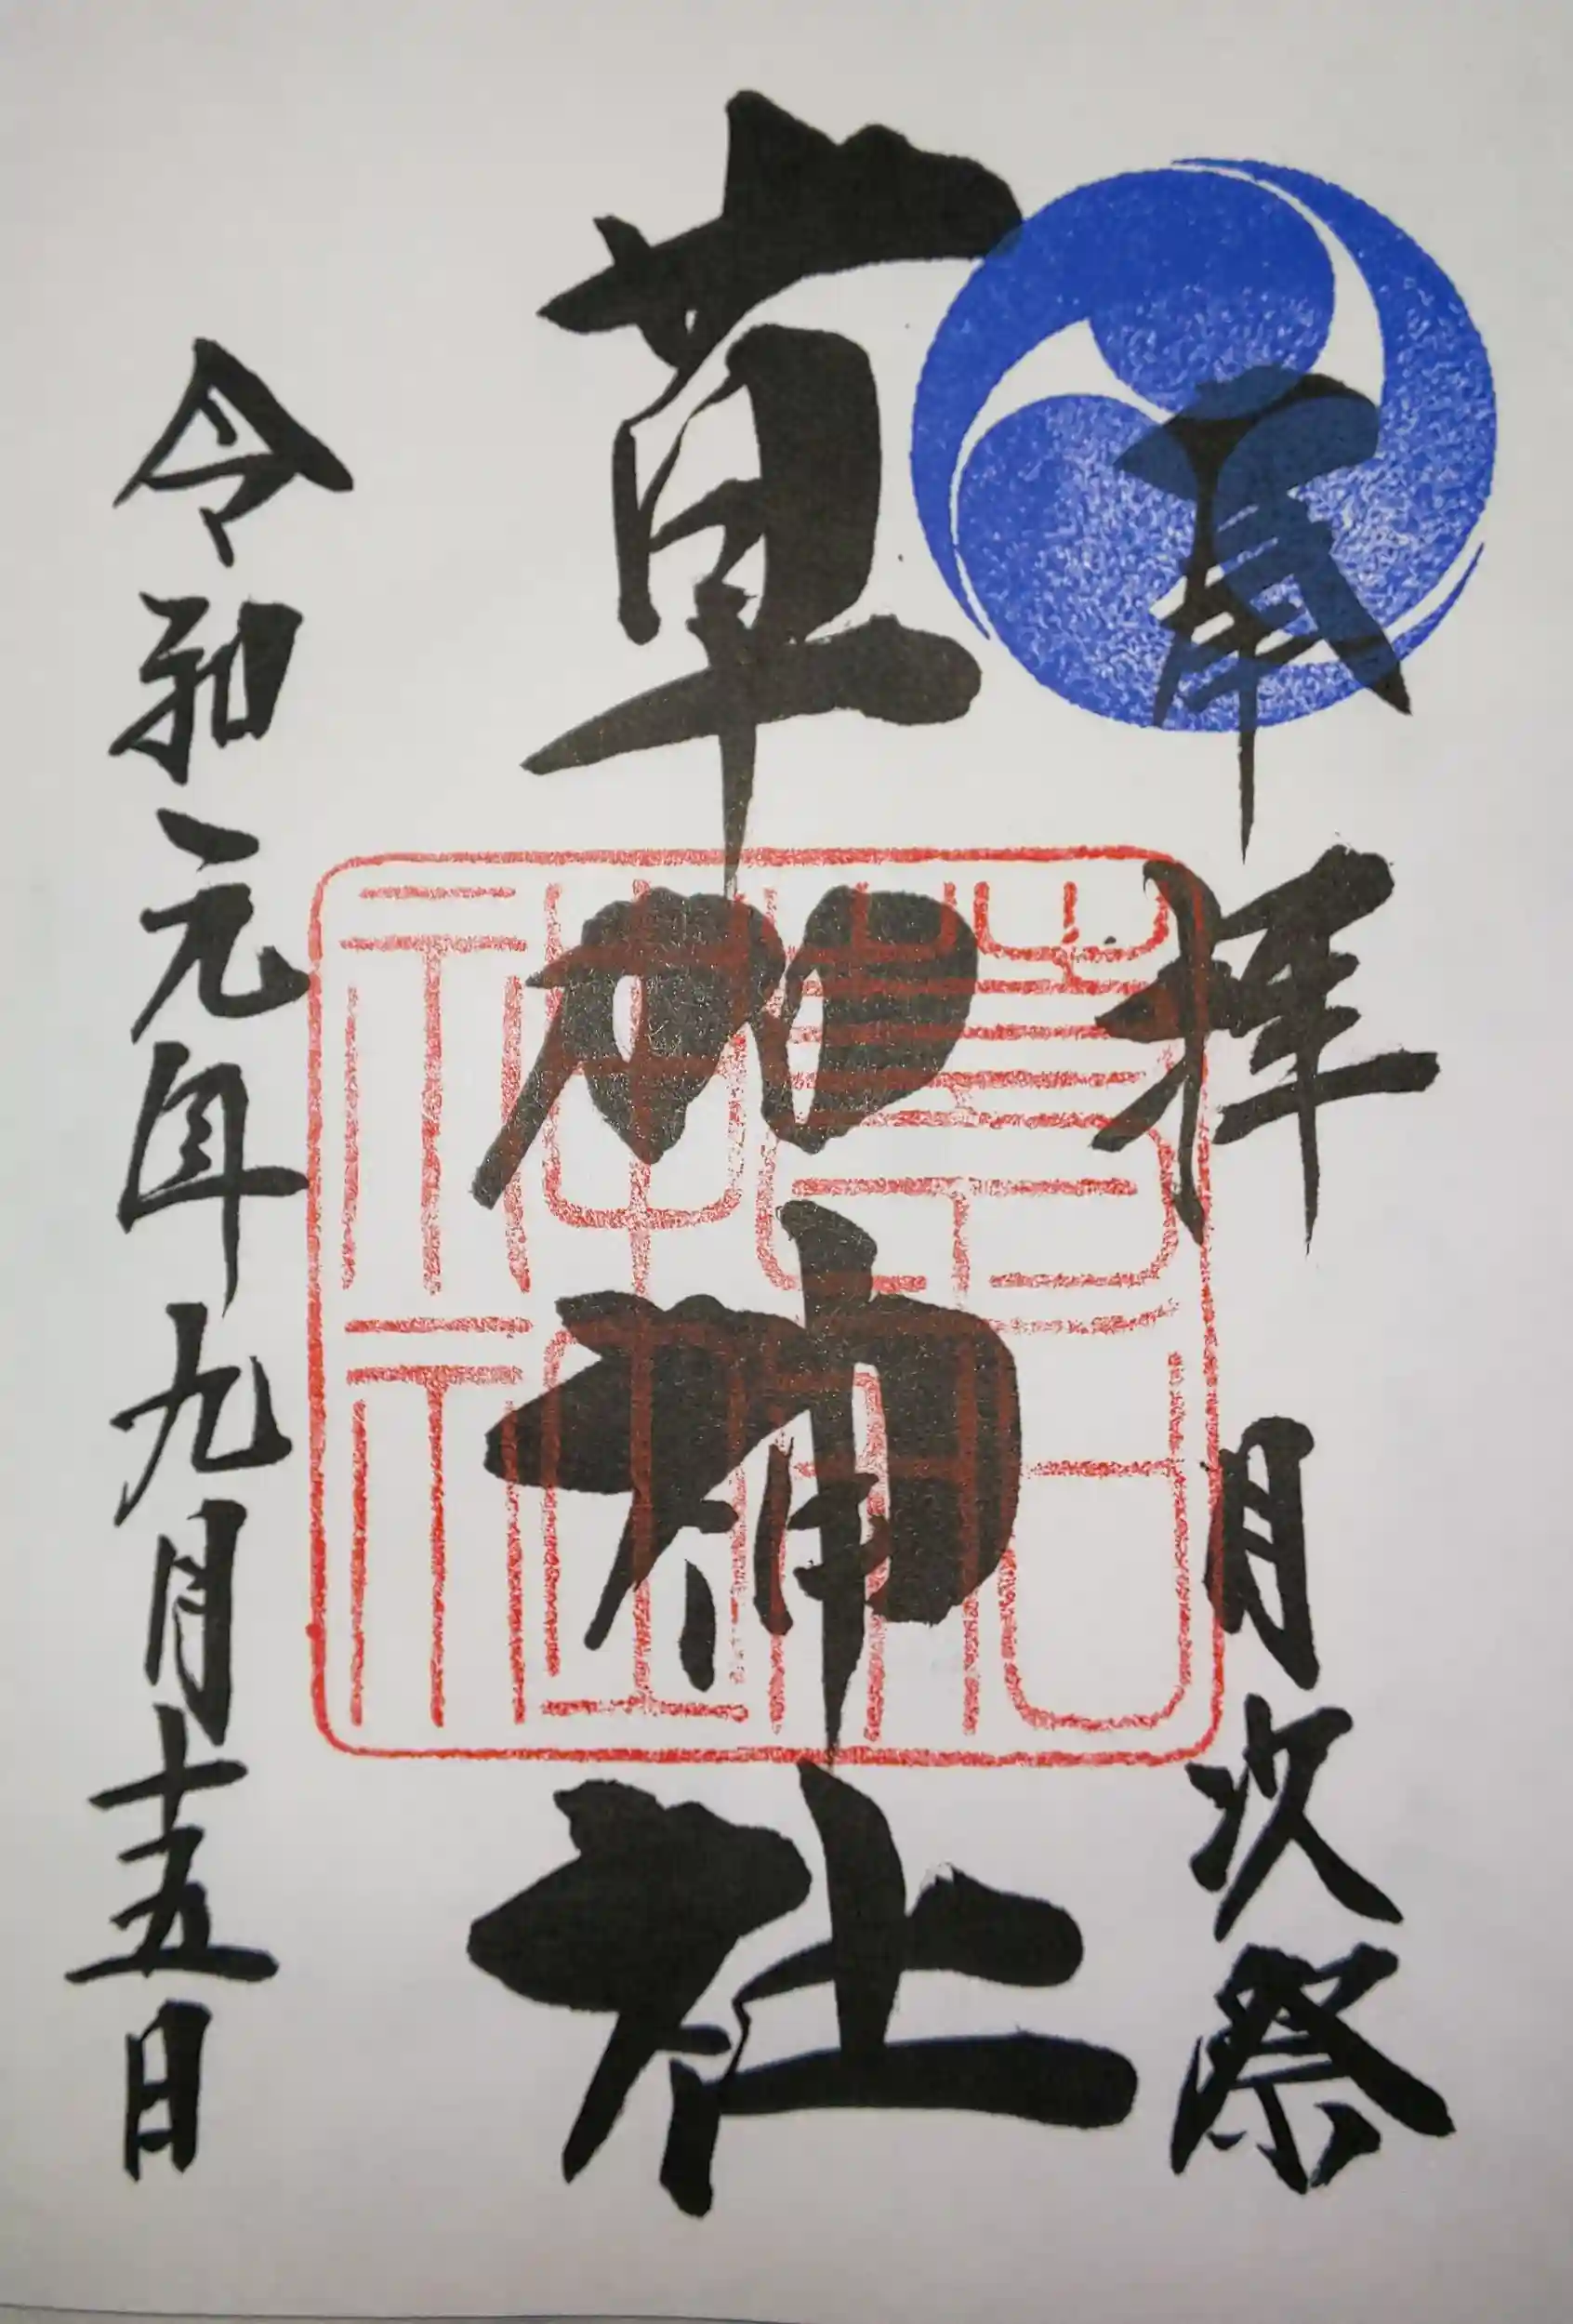 奉拝 月次祭
草加神社
令和元年九月十五日